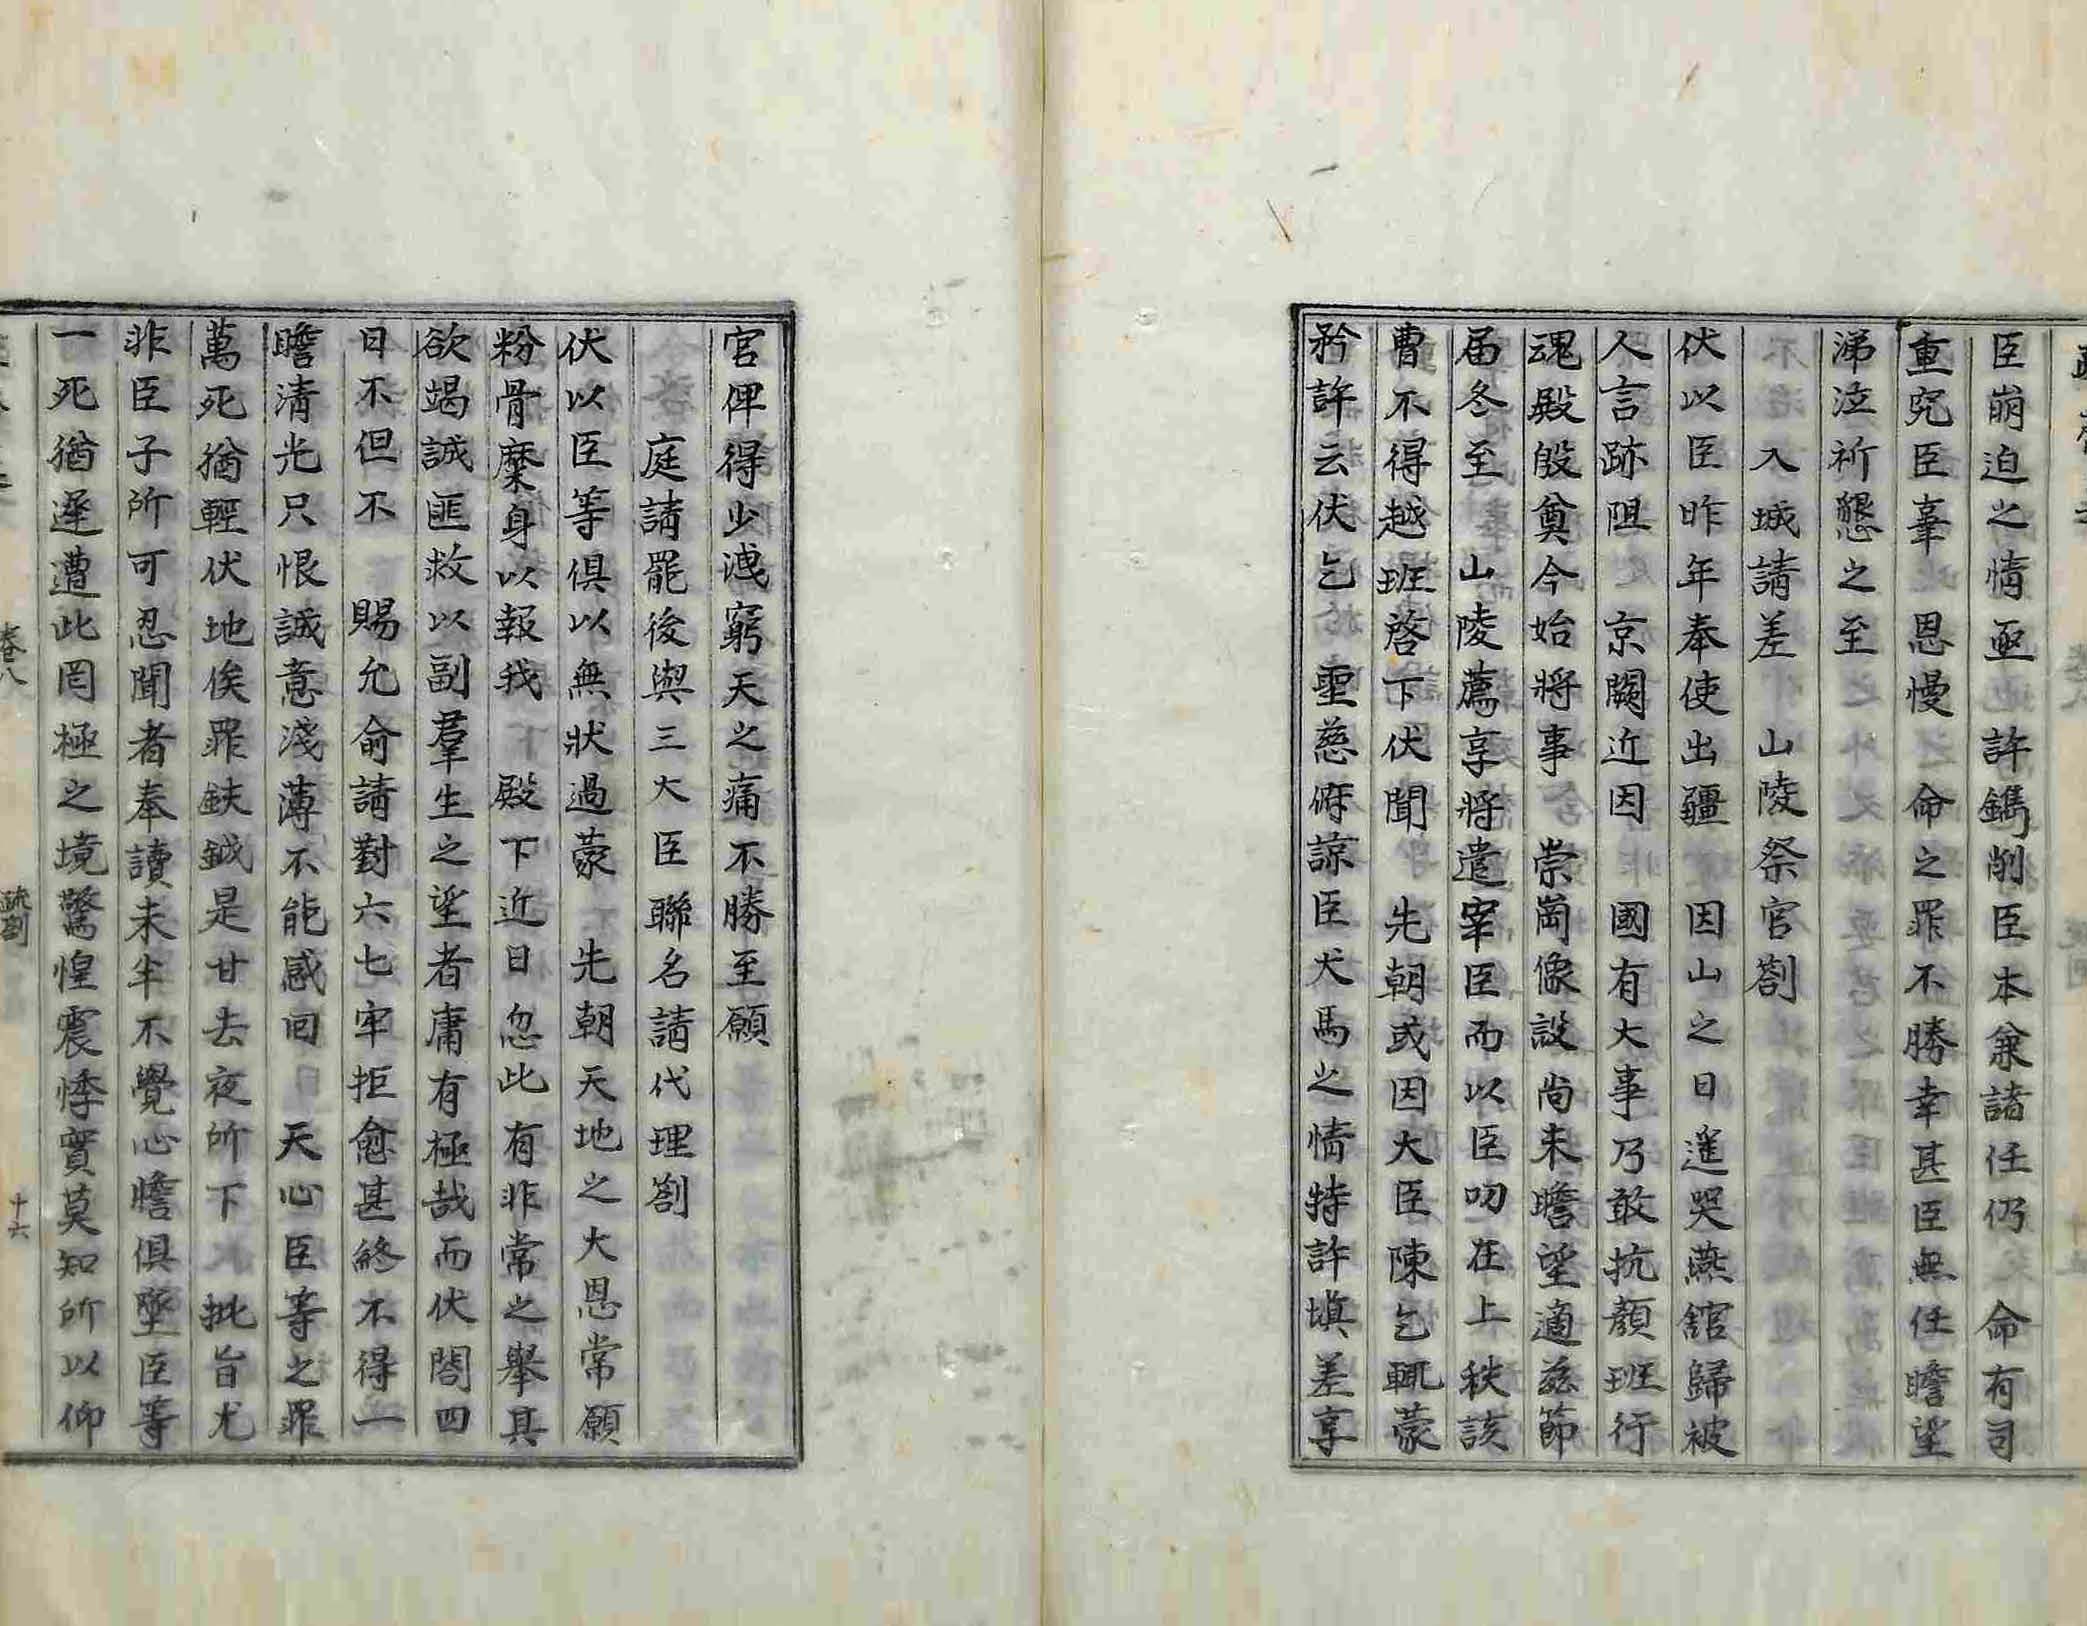 臣崩迫之情亟 許鐫削臣本兼諸任仍 命有司
重究臣辜 恩慢 命之罪不勝幸甚臣無任瞻望
涕泣祈懇之至
入城請差 山陵祭官劄
伏以臣昨年奉使出疆 因山之日遥哭燕館歸被
人言跡阻 京闕近因 國有大事乃敢抗顏班行
魂殿殷奠今始將事 崇岡像設尚未瞻望適茲節
届冬至 山陵薦享將遣宰臣而以臣叨在上秩該
曹不得越班啓下伏聞 先朝或因大臣陳乞輒蒙
矜許云伏乞 聖慈俯諒臣犬馬之情特許塡差享
官俾得少洩窮天之痛不勝至願
庭請罷後與三大臣聯名請代理劄
伏以臣等俱以無狀過蒙 先朝天地之大恩常願
粉骨糜身以報我 殿下近日忽此有非常之擧具
欲竭誠匡救以副羣生之望者庸有極哉而伏閤四
日不但不 賜允俞請對六七牢拒愈甚終不得一
瞻清光只恨誠意淺薄不能感回 天心臣等之罪
萬死猶輕伏地俟罪鈇鉞是甘去夜所下 批旨尤
非臣子所可忍聞者奉讀未半不覺心膽俱墜臣等
一死猶遲遭此罔極之境驚惶震悸實莫知所以仰
卷八
疏劄
十六